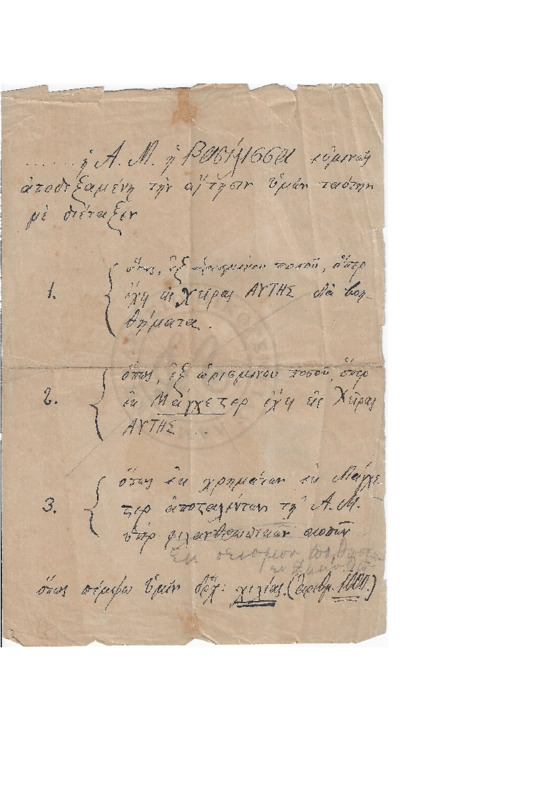 ...... ἡ Α. Μ. ἡ Βασίλισσα εὐμενῶς
ἀποδεξαμένη τὴν αἴτησιν ὑμῶν ταύτην
μὲ διέταξεν
1. ὅπως, ἐξ ὡρισμένου ποσοῦ, ὅπερ
ἔχει εἰς χεῖρας ΑΥΤΗΣ διὰ βοη-
θήματα.
2. ὅπως, ἐξ ὡρισμένου ποσοῦ, ὅπερ
ἐκ Μάγχεστερ ἔχει εἰς Χεῖρας
ΑΥΤΗΣ ...
3. ὅπως ἐκ χρημάτων ἐκ Μάγχε-
στερ ἀποσταλέντων τῇ Α. Μ.
ὑπὲρ φιλανθρωπικῶν σκοπῶν
ὅπως πέμψω ὑμῖν δρχ: χιλίας. (ἀριθμ. 1000.)